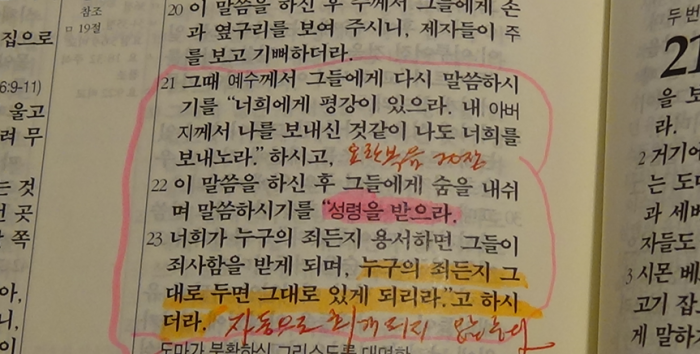 참조
□ 19절
집으로
6:9-11)
울고
려 무
는 것
번 곳
쪽
아,
니,
20 이 말씀을 하신 후 주께서 그들에게 손
과 옆구리를 보여 주시니, 제자들이 주
를 보고 기뻐하더라.
21 그때 예수께서 그들에게 다시 말씀하시
기를 “너희에게 평강이 있으라. 내 아버
지께서 나를 보내신 것같이 나도 너희를
보내노라.” 하시고, 요한복음 20장
22 이 말씀을 하신 후 그들에게 숨을 내쉬
며 말씀하시기를 “성령을 받으라.
23 너희가 누구의 죄든지 용서하면 그들이
죄사함을 받게 되며, 누구의 죄든지 그
대로 두면 그대로 있게 되리라.”고 하시
더라. 자동으로 회개 되지
도마가 부활하신 그리스도를 대면함
두 번
21
을 보
라.
2 거기에
는 도마
과 세베
자들도
3 시몬 베
고기 잡
게 말하